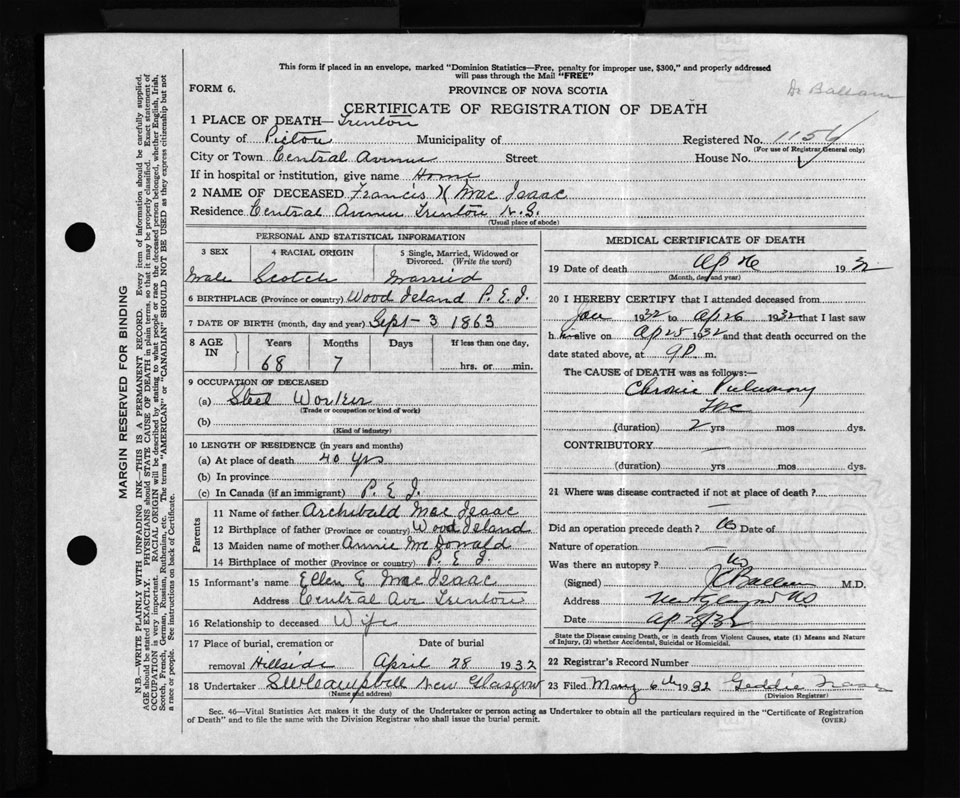 This form if placed in an envelope, marked "Dominion Statistics—Free, penalty for improper use, $300," and properly addressed
will pass through the Mail "FREE"
FORM 6.
PROVINCE OF NOVA SCOTIA
Dr Ballam
CERTIFICATE OF REGISTRATION OF DEATH
1 PLACE OF DEATH— Trenton
County of Pictou Municipality of Registered No. 1154
(For use of Registrar General only)
City or Town Central Avenue Street House No.
If in hospital or institution, give name Home
2 NAME OF DECEASED Francis MacIsaac
Residence Central Avenue Trenton N.S.
(Usual place of abode)
PERSONAL AND STATISTICAL INFORMATION
3 SEX 4 RACIAL ORIGIN 5 Single, Married, Widowed or
Divorced. (Write the word)
Male Scotch Married
6 BIRTHPLACE (Province or country) Wood Island P.E.I.
7 DATE OF BIRTH (month, day and year) Sept 3 1863
8 AGE IN Years Months Days If less than one day,
68 7 hrs. or min.
9 OCCUPATION OF DECEASED
(a) Steel Worker
(Trade or occupation or kind of work)
(b)
(Kind of industry)
10 LENGTH OF RESIDENCE (in years and months)
(a) At place of death 40 yrs
(b) In province
(c) In Canada (if an immigrant) P.E.I.
Parents
11 Name of father Archibald MacIsaac
12 Birthplace of father (Province or country) Wood Island
13 Maiden name of mother Annie McDonald
14 Birthplace of mother (Province or country) P.E.I.
15 Informant's name Ellen E MacIsaac
Address Central Ave Trenton
16 Relationship to deceased Wife
17 Place of burial, cremation or Date of burial
removal Hillside April 28 1932
18 Undertaker SW Campbell New Glasgow
(Name and address)
MEDICAL CERTIFICATE OF DEATH
19 Date of death Ap 26 1932
(Month, day and year)
20 I HEREBY CERTIFY that I attended deceased from
Jan 1932 to Ap 26 1932 that I last saw
him alive on Ap 25 1932 and that death occurred on the
date stated above, at 9 P. m.
The CAUSE OF DEATH was as follows:—
Chronic Pulmonary
Tbc
(duration) 2 yrs mos dys.
CONTRIBUTORY
(duration) yrs mos dys.
21 Where was disease contracted if not at place of death?
Did an operation precede death? No Date of
Nature of operation
Was there an autopsy? No
(Signed) Ballam M.D.
Address New Glasgow NS
Date Ap 28/32
State the Disease causing Death, or in death from Violent Causes, state (1) Means and Nature
of Injury, (2) whether Accidental, Suicidal or Homicidal.
22 Registrar's Record Number
23 Filed May 6th 1932 Geddie
(Division Registrar)
Sec. 46—Vital Statistics Act makes it the duty of the Undertaker or person acting as Undertaker to obtain all the particulars required in the "Certificate of Registration
of Death" and to file the same with the Division Registrar who shall issue the burial permit.
(OVER)
MARGIN RESERVED FOR BINDING
N.B.—WRITE PLAINLY WITH UNFADING INK—THIS IS A PERMANENT RECORD. Every item of information should be carefully supplied.
AGE should be stated EXACTLY. PHYSICIANS should STATE CAUSE OF DEATH in plain terms, so that it may be properly classified. Exact statement of
OCCUPATION is very important. RACIAL ORIGIN will be described by stating to what people or race the deceased person belonged, whether English, Irish,
Scotch, French, German, Russian, Ruthenian, etc. The terms "AMERICAN" or "CANADIAN" SHOULD NOT BE USED as they express citizenship but not
a race or people. See instructions on back of Certificate.